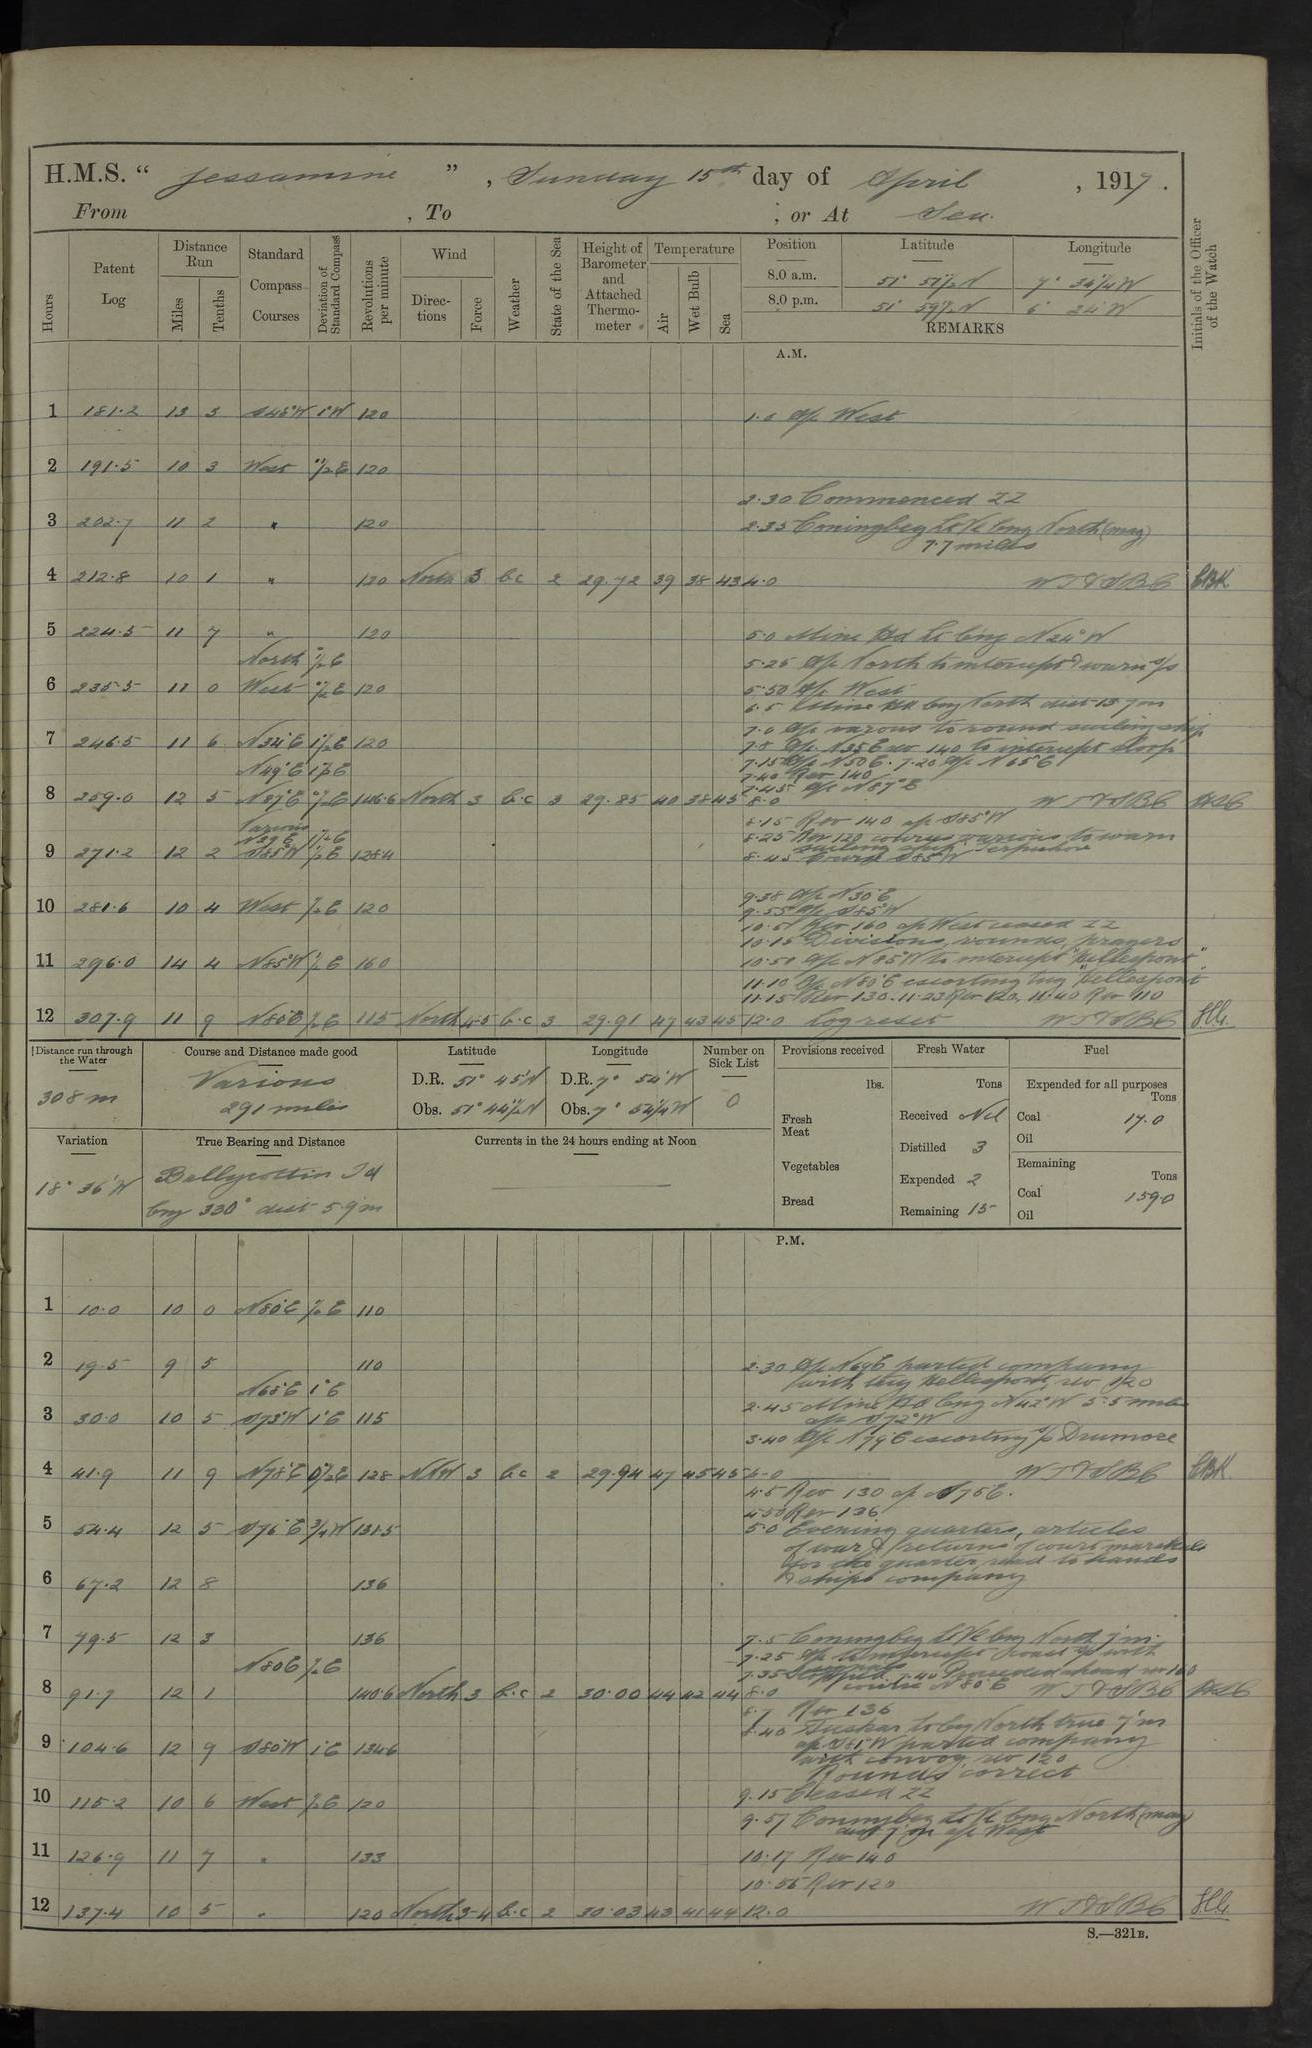 H.M.S. " Jessamine ", Sunday 15th day of April, 1917.
From , To ; or At Sea.
Hours Patent Log Distance Run Miles Tenths Standard Compass Courses Deviation of Standard Compass Revolutions per minute Wind Directions Force Weather State of the Sea Height of Barometer and Attached Thermometer Temperature Air Wet Bulb Sea Position Latitude Longitude Initials of the Officer of the Watch
8.0 a.m. 51° 51½ N 7° 36¼ W
8.0 p.m. 51° 59½ N 6° 24 W
REMARKS
A.M.
1 181.2 13 3 S45°W 1°W 120 1.0 A/c West
2 191.5 10 3 West ½E 120
2.30 Commenced ZZ
3 202.7 11 2 " 120 2.35 Coningbeg Lt Vl bng North (mag)
7.7 miles
4 212.8 10 1 " 120 North 3 b.c 2 29.72 39 38 43 4.0 EBK
5 224.5 11 7 " 120 5.0 Mine Hd Lt bng N24°W
North ½E 5.25 A/c North to intercept & warn s/s
6 235.5 11 0 West ½E 120 5.50 A/c West
6.5 Mine Hd bng North dist 13 7m
7.0 A/c various to round sailing ship
7 246.5 11 6 N34°E 1½E 120 7.8 A/c N35E rev 140 to intercept sloop
N49°E 1½E 7.15 A/c N50E. 7.20 A/c N65°E
7.40 Rev 140
7.45 A/c N87°E
8 259.0 12 5 N87°E ½E 146.6 North 3 b.c 3 29.85 40 38 45 8.0
8.15 Rev 140 a/c S85°W
Various N39E 1½E 8.25 Rev 120 courses various to warn
sailing ship
9 271.2 12 2 S85°W ½E 128.4 8.45 Course S85°W
9.38 A/c N30E
10 281.6 10 4 West ½E 120 9.55 A/c S85°W
10.5 Rev 160 a/c West ceased ZZ
10.15 Divisions, rounds, prayers
11 296.0 14 4 N85°W ½E 160 10.50 A/c N85°W to intercept "Hellespont"
11.10 A/c N80°E escorting tug "Hellespont"
11.15 Rev 130. 11.23 Rev 120, 11.40 Rev 110
12 307.9 11 9 N80°E ½E 115 North 4.5 b.c 3 29.91 47 43 45 12.0 Log reset
Distance run through the Water Course and Distance made good Latitude Longitude Number on Sick List Provisions received Fresh Water Fuel
308 m Various 291 miles D.R. 51° 45'N D.R. 7° 54'W 0 lbs. Tons Expended for all purposes Tons
Obs. 51° 44½'N Obs. 7° 54¼'W Fresh Meat Received Nil Coal 17.0
Oil
Variation True Bearing and Distance Currents in the 24 hours ending at Noon Vegetables Distilled 3 Remaining Tons
18° 36'W Ballycottin Id Expended 2 Coal 159.0
bng 330° dist 5.9m Bread Remaining 15 Oil
P.M.
1 10.0 10 0 N80°E ½E 110
2 19.5 9 5 110 2.30 A/c N69E parted company
with tug Hellespont, rev 120
N65°E 1°E 2.45 Mine Hd bng N42°W 5.5 miles
3 30.0 10 5 S73°W 1°E 115 a/c S72°W
3.40 A/c N79°E escorting s/s Drumore
4 41.9 11 9 N78°E 0½E 128 NNW 3 b.c 2 29.94 47 45 45 4.0 EBK
4.5 Rev 130 a/c N75E.
4.50 Rev 136
5 54.4 12 5 S76°E ¾W 131.5 5.0 Evening quarters, articles
of war & returns of court martials
for the quarter read to hands
6 67.2 12 8 136 & ships company
7 79.5 12 3 136 7.5 Coningbeg Lt Vl bng North 7m.
N80E ½E 7.25 A/c to intercept
7.35 7.40 Proceeded ahead rev 160
course N80°E
8 91.7 12 1 140.6 North 3 b.c 2 30.00 44 42 44 8.0
8.7 Rev 136
8.40 Tuskar lt bng North true 7m
9 104.6 12 9 S80°W 1°E 134.6 a/c S81°W parted company
with convoy, rev 120
Rounds correct
10 115.2 10 6 West ½E 120 9.15 Ceased ZZ
9.57 Coningbeg Lt Vl bng North (mag)
dist 7 m a/c West
11 126.9 11 7 " 133 10.17 Rev 140
10.55 Rev 120
12 137.4 10 5 " 120 North 3-4 b.c 2 30.03 43 41 44 12.0
S.—321B.